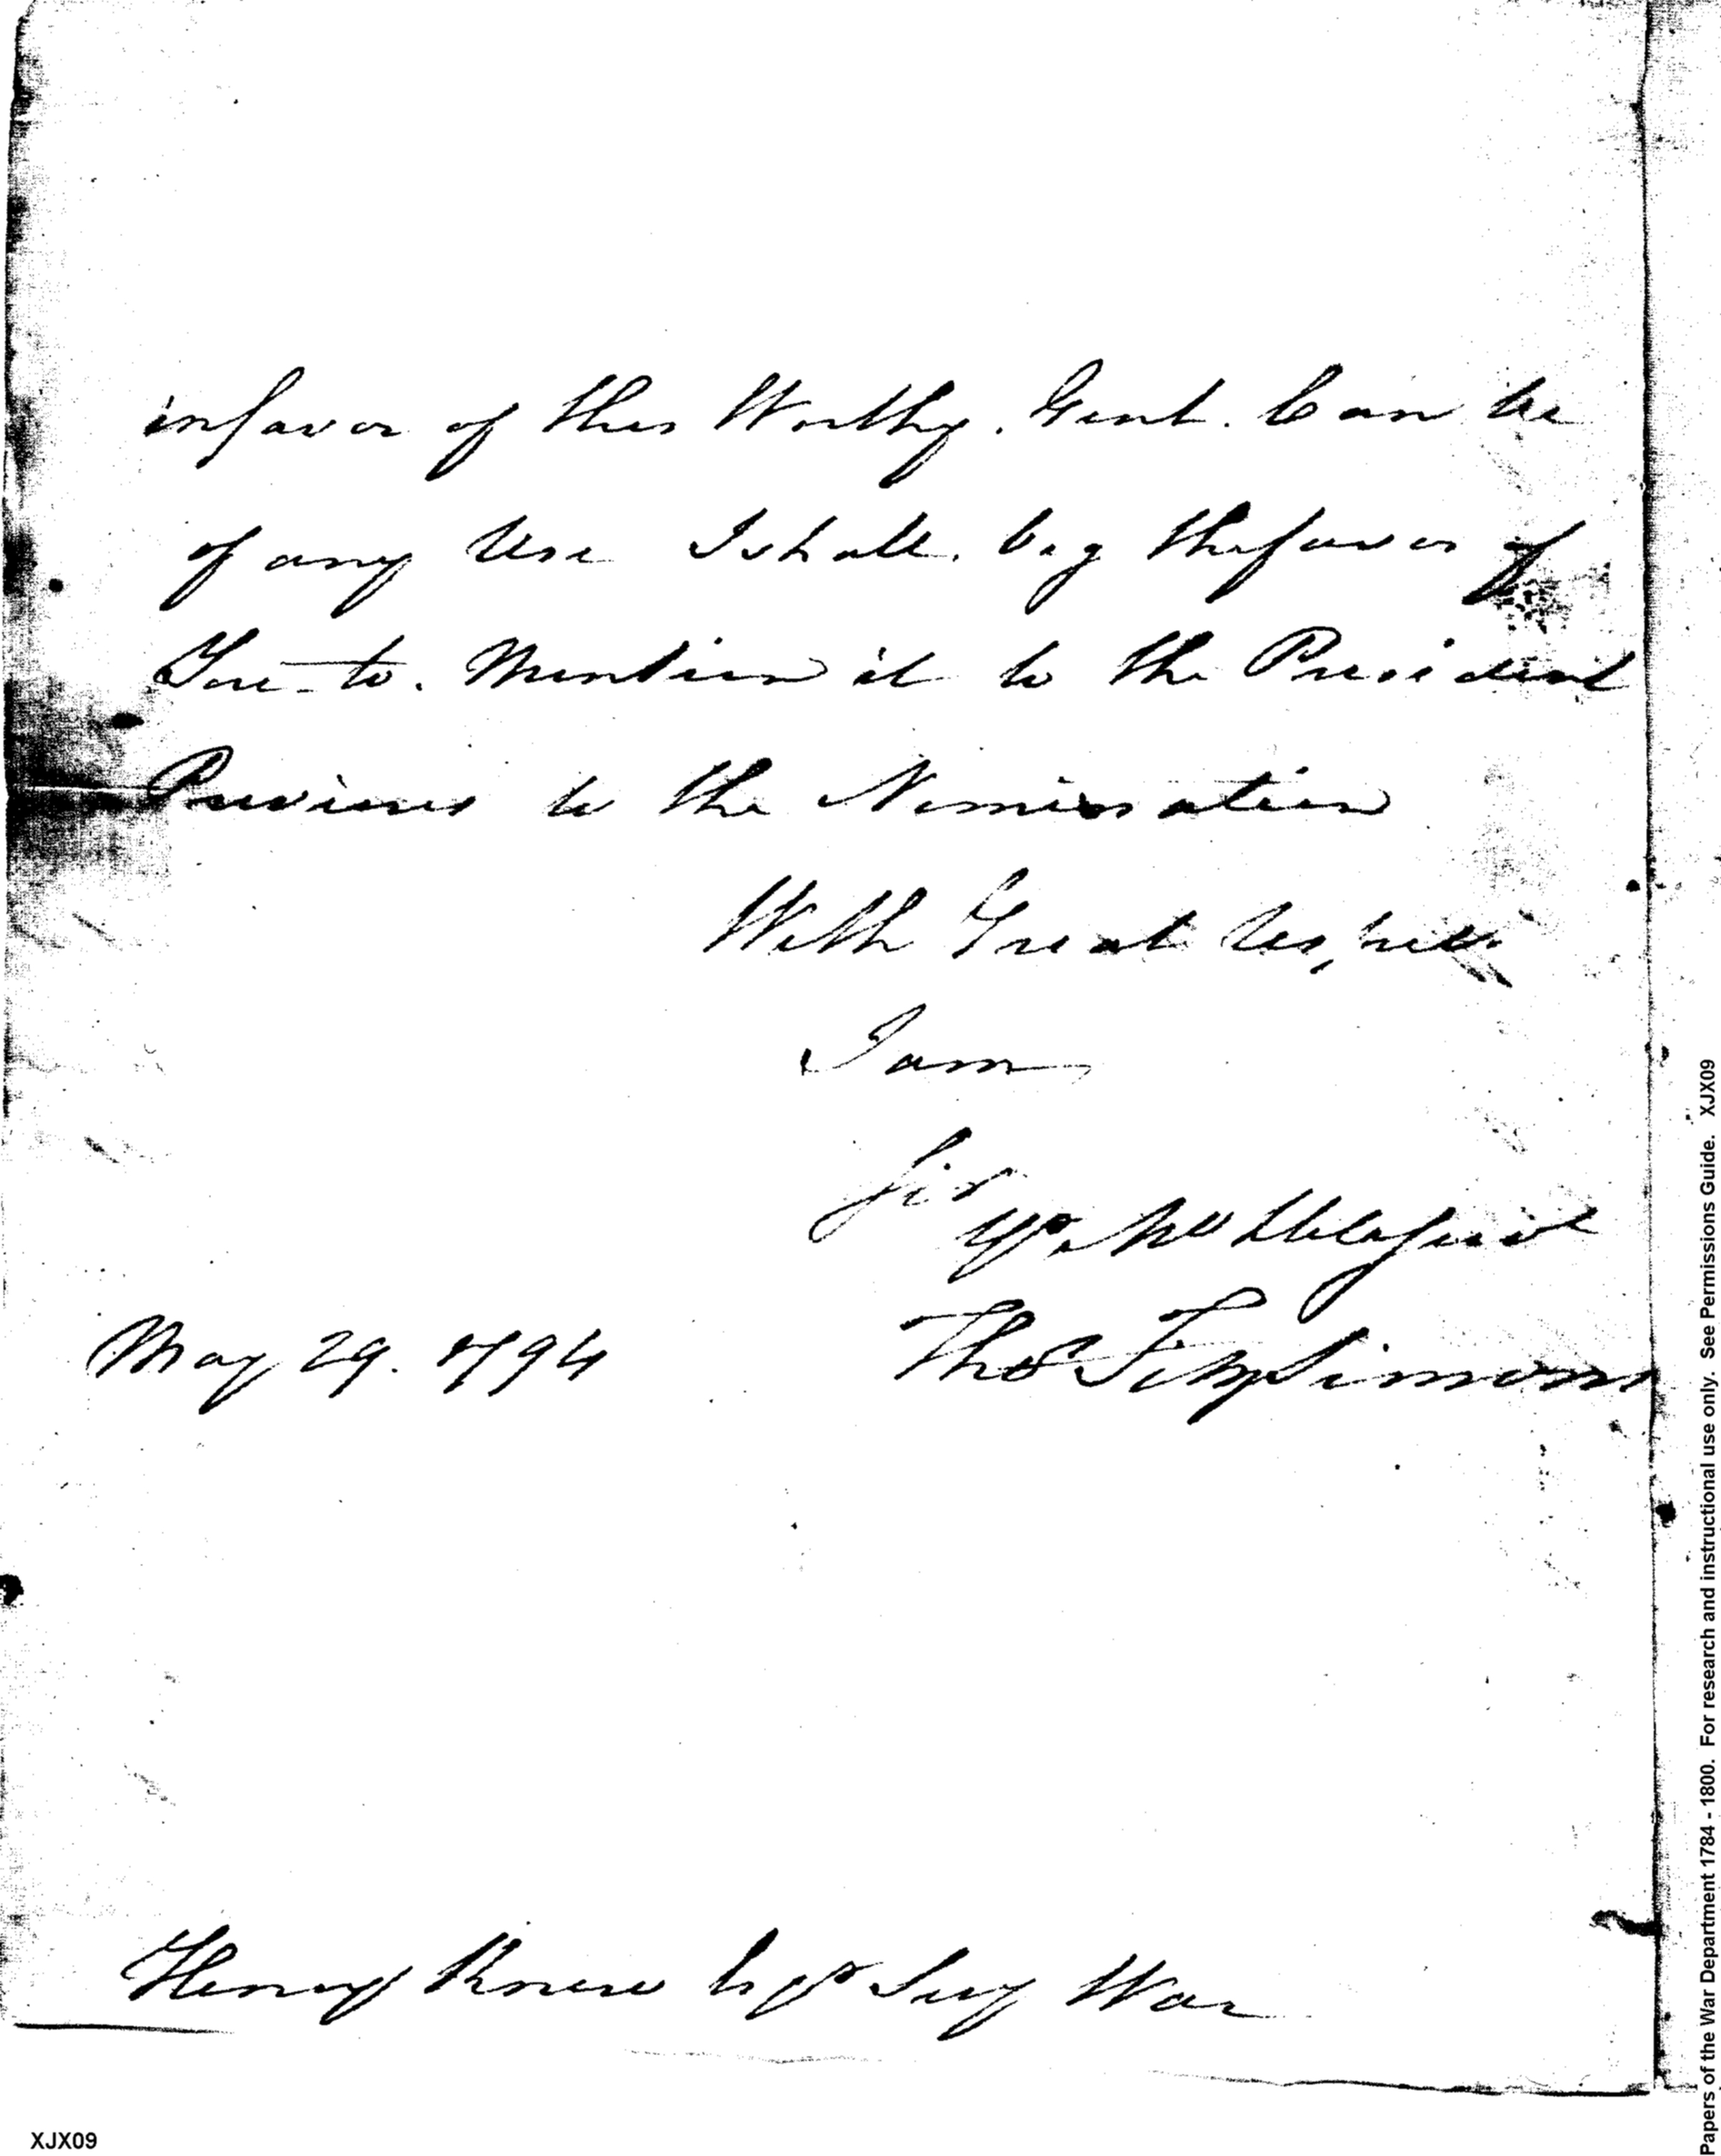 infavor of this Worthy. Gent. Can be
of any Use I shall. beg the favor of
You to. Mention it to the President
Previous to the Nomination
With Great Respect
I am
Sir
Yr. Mo Obed Servt
May 29. 1794
Thos FitzSimons
Henry Knox Esqr Secy War
XJX09
Papers of the War Department 1784 - 1800. For research and instructional use only. See Permissions Guide. XJX09